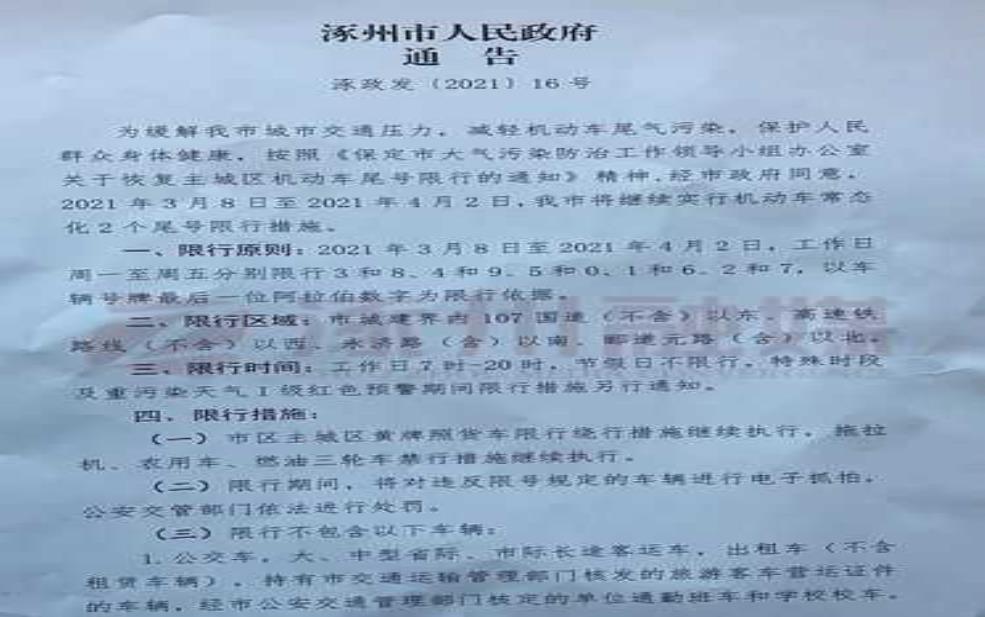 涿州市人民政府
通 告
涿政发〔2021〕16号
为缓解我市城市交通压力，减轻机动车尾气污染，保护人民
群众身体健康，按照《保定市大气污染防治工作领导小组办公室
关于恢复主城区机动车尾号限行的通知》精神，经市政府同意，
2021年3月8日至2021年4月2日，我市将继续实行机动车常态
化2个尾号限行措施。
一、限行原则：2021年3月8日至2021年4月2日，工作日
周一至周五分别限行3和8、4和9、5和0、1和6、2和7，以车
辆号牌最后一位阿拉伯数字为限行依据。
二、限行区域：市城建界内107国道（不含）以东、高速铁
路线（不含）以西、水济路（含）以南、郦道元路（含）以北。
三、限行时间：工作日7时-20时，节假日不限行，特殊时段
及重污染天气I级红色预警期间限行措施另行通知。
四、限行措施：
（一）市区主城区黄牌照货车限行绕行措施继续执行，拖拉
机、农用车、燃油三轮车禁行措施继续执行。
（二）限行期间，将对违反限号规定的车辆进行电子抓拍，
公安交管部门依法进行处罚。
（三）限行不包含以下车辆：
1.公交车，大、中型省际、市际长途客运车，出租车（不含
租赁车辆），持有市交通运输管理部门核发的旅游客车营运证件
的车辆，经市公安交通管理部门核定的单位通勤班车和学校校车。